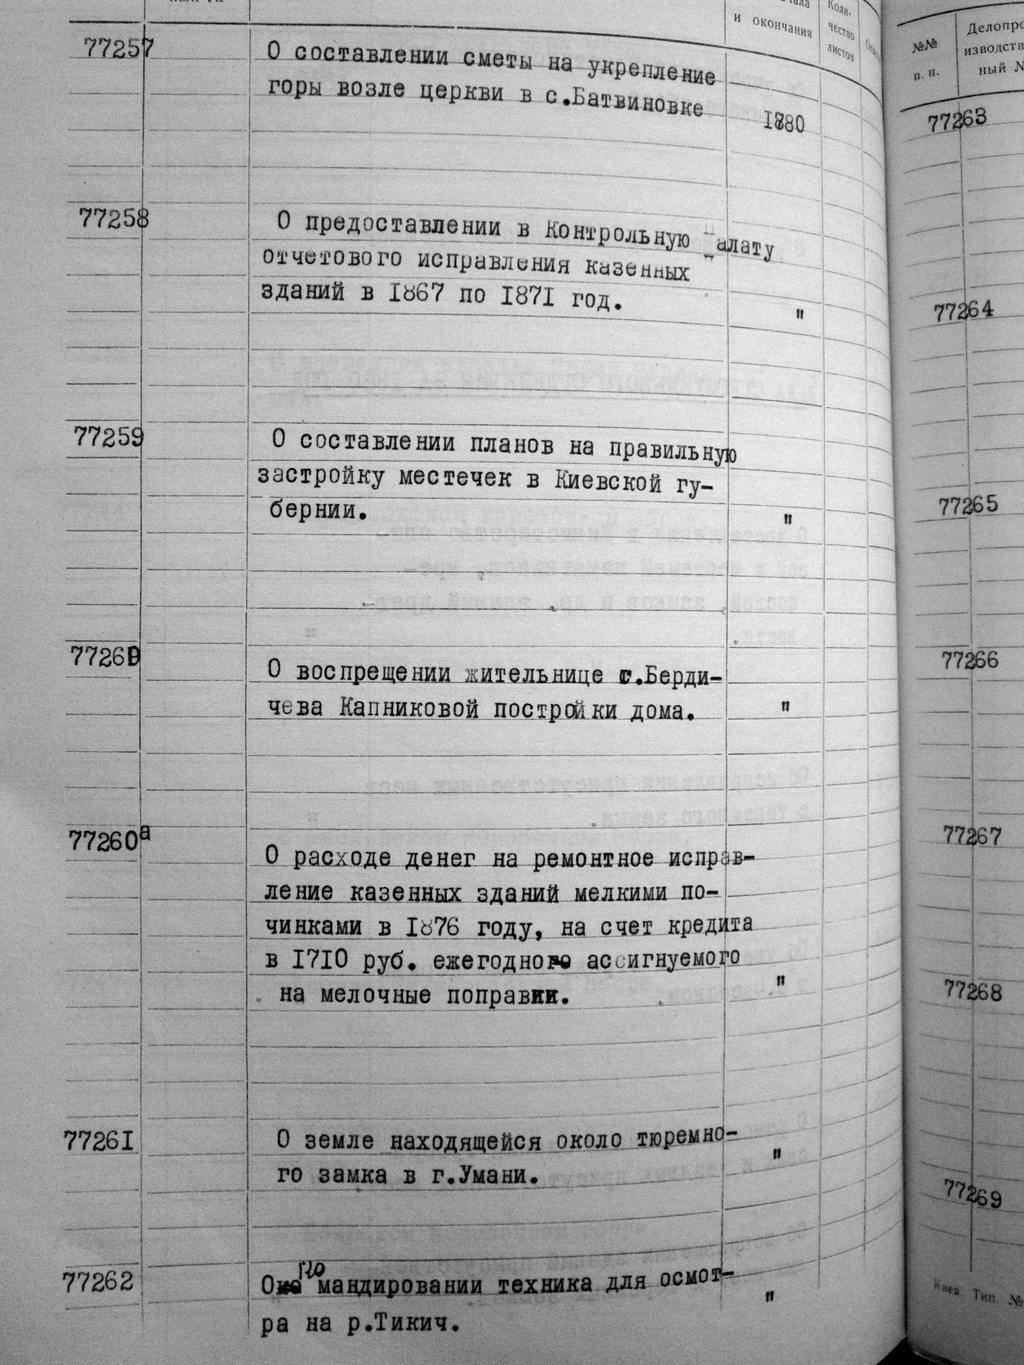 и окончания
Коли-
чество
листов
77257
О составлении сметы на укрепление
горы возле церкви в с.Батвиновке
1880
77258
О предоставлении в Контрольную Палату
отчетового исправления казенных
зданий в 1867 по 1871 год.
"
77259
О составлении планов на правильную
застройку местечек в Киевской гу-
бернии.
"
77260
О воспрещении жительнице г.Берди-
чева Капниковой постройки дома.
"
77260а
О расходе денег на ремонтное исправ-
ление казенных зданий мелкими по-
чинками в 1876 году, на счет кредита
в 1710 руб. ежегодного ассигнуемого
на мелочные поправки.
"
77261
О земле находящейся около тюремно-
го замка в г.Умани.
"
77262
О по мандировании техника для осмот-
ра на р.Тикич.
"
№№
п. п.
Делопро
изводств
ный №
77263
77264
77265
77266
77267
77268
77269
Киев. Тип. №